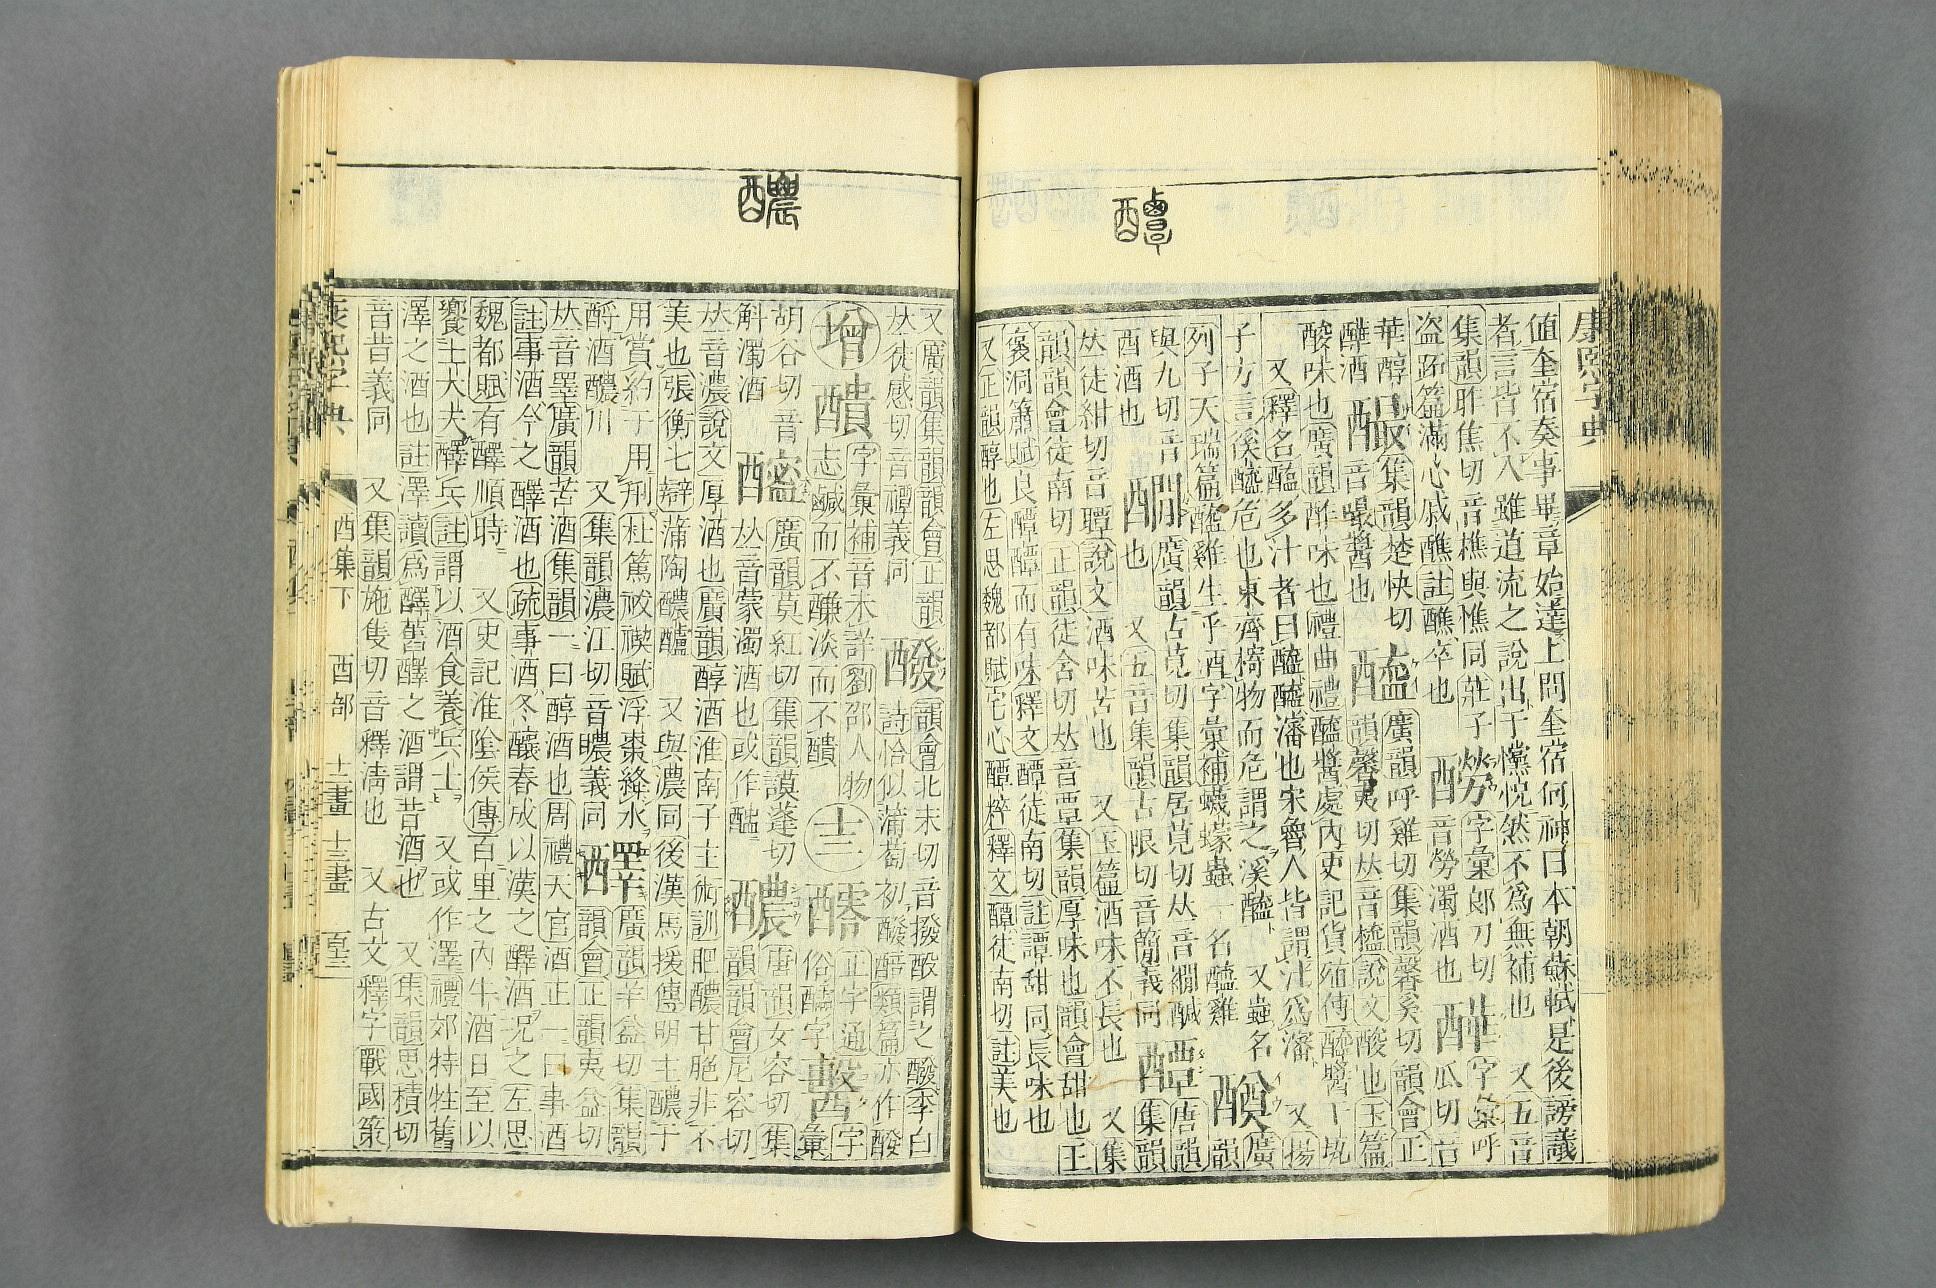 醰
康熙字典
値奎宿奏事畢章始達上問奎宿何神曰本朝蘇軾是後謗議
者言皆不入雖道流之說出于懽悅然不爲無補也 又五音
集韻昨焦切音樵與憔同莊子 醪 字彙郎刀切 字彙呼
盜跖篇滿心戚醮註醮卒也 音勞濁酒也 瓜切音
華醇 集韻楚快切 醯 廣韻呼雞切集韻馨奚切韻會正
譁酒 音嘬醬也 韻馨夷切𠀤音橀說文酸也玉篇
酸味也廣韻酢味也禮曲禮醯醬處內史記貨殖傳醯醬千瓨
又釋名醢多汁者曰醯醯瀋也宋魯人皆謂汁爲瀋 又揚
子方言徯醯危也東齊㨒物而危謂之徯醯 又蟲名 廣
列子天瑞篇醯雞生乎酒字彙補蠛蠓蟲一名醯雞 韻
與九切音 廣韻古莧切集韻居莧切𠀤音襉鹹 醰 唐韻
酉酒也 也 又五音集韻古限切音簡義同 集韻
𠀤徒紺切音瞫說文酒味苦也 又玉篇酒味不長也 又集
韻韻會徒南切正韻徒含切𠀤音覃集韻厚味也韻會甜也王
褎洞簫賦良醰醰而有味釋文醰徒南切註譚甜同長味也
又正韻醇也左思魏都賦宅心醰粹釋文醰徒南切註美也
醲
又廣韻集韻韻會正韻 醱 韻會北末切音撥酘謂之醱李白
𠀤徒感切音禫義同 詩恰似蒲萄初醱醅類篇亦作酸
增 醩 字彙補音未詳劉邵人物 十三 醹 正字通 醫 字
志鹹而不䭑淡而不醩 俗 字 彙
胡谷切音 醠 廣韻莫紅切集韻謨蓬切 醲 唐韻女容切集
斛濁酒 𠀤音蒙濁酒也或作醠 韻韻會尼容切
𠀤音濃說文厚酒也廣韻醇酒淮南子主術訓肥醲甘脆非不
美也張衡七辯蒲陶醲醽 又與農同後漢馬援傳明主醲于
用賞約于用刑杜篤祓禊賦浮棗絳水 醳 廣韻羊益切集韻
酹酒醲川 又集韻濃江切音膿義同 韻會正韻夷益切
𠀤音睪廣韻苦酒集韻一曰醇酒也周禮天官酒正一曰事酒
註事酒今之醳酒也疏事酒冬釀春成以漢之醳酒况之左思
魏都賦有醳順時 又史記淮陰侯傳百里之內牛酒日至以
饗士大夫醳兵註謂以酒食養兵士 又或作澤禮郊特牲舊
澤之酒也註澤讀爲醳舊醳之酒謂昔酒也 又集韻思積切
音昔義同 又集韻施隻切音釋淸也 又古文釋字戰國策
康熙字典 酉集下 酉部 十二畫 十三畫 百三